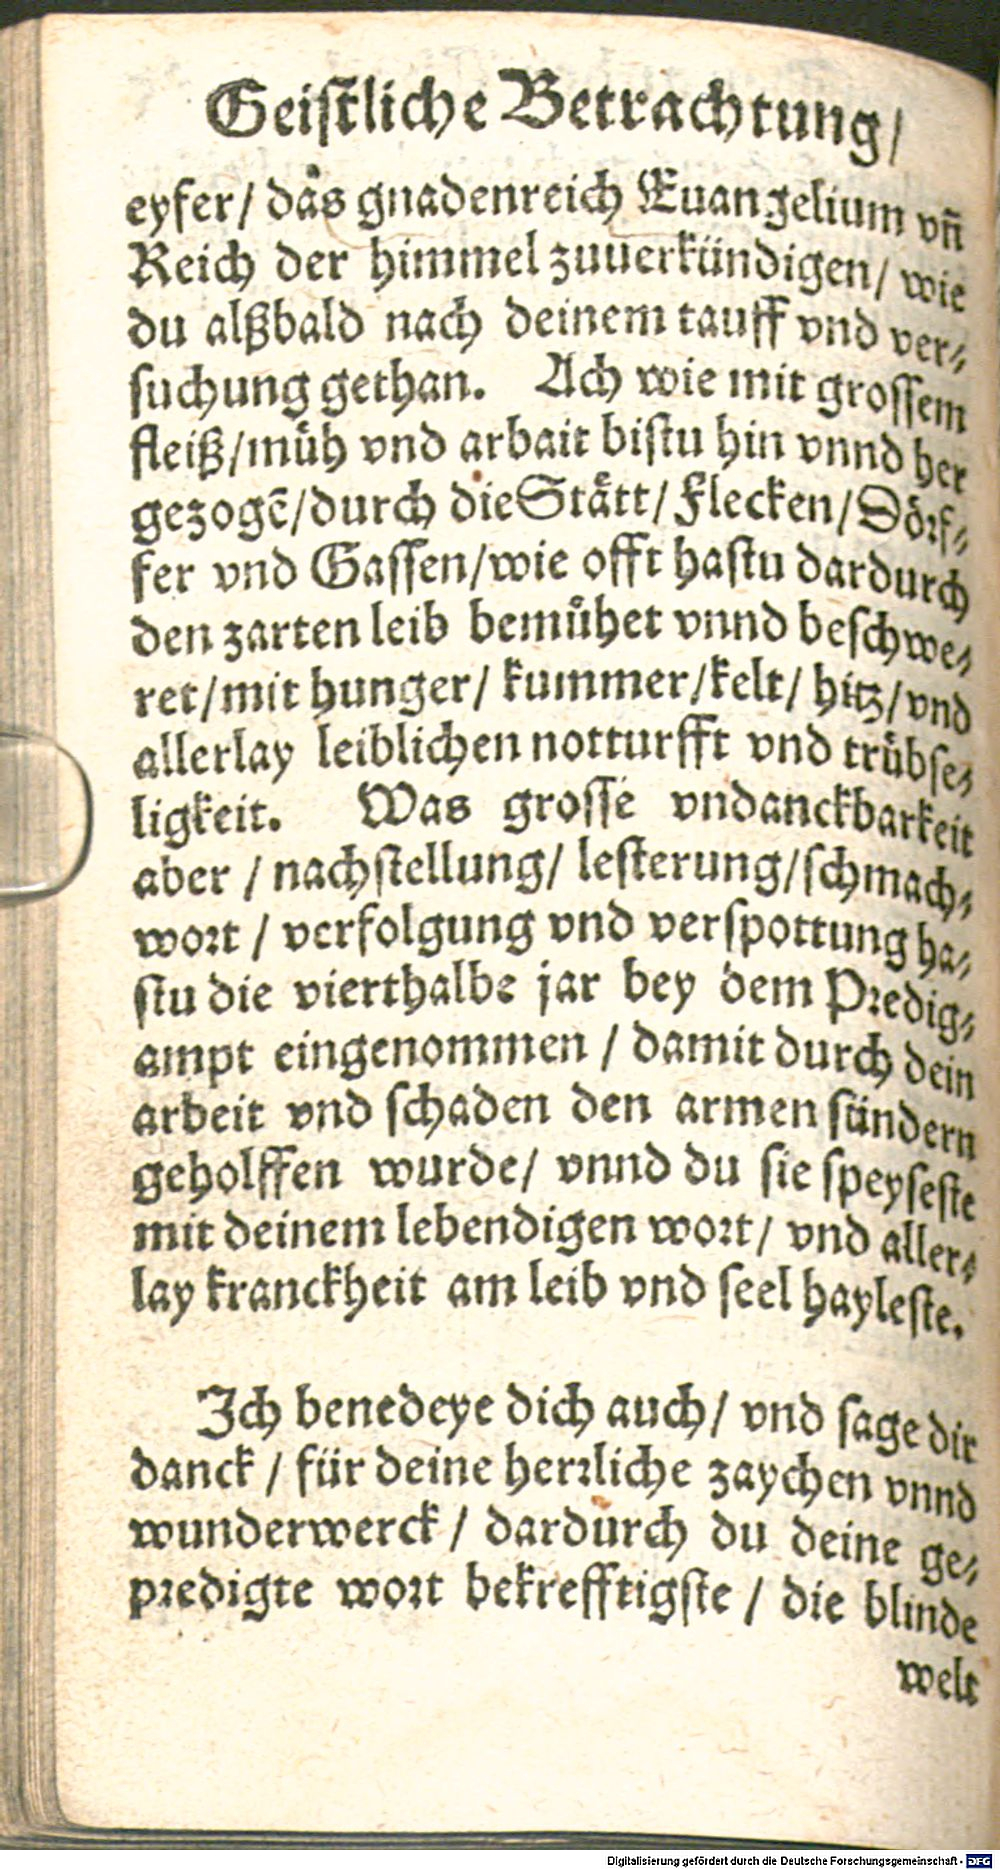 Geistliche Betrachtung/
eyfer/ das gnadenreich Euangelium vñ
Reich der himmel zuuerkündigen/ wie
du alßbald nach deinem tauff vnd ver-
suchung gethan. Ach wie mit grossem
fleiß/müh vnd arbait bistu hin vnnd her
gezogẽ/durch die Stätt/ Flecken/Dörf-
fer vnd Gassen/wie offt hastu dardurch
den zarten leib bemühet vnnd beschwe-
ret/mit hunger/ kummer/kelt/ hitz/vnd
allerlay leiblichen notturfft vnd trübse-
ligkeit. Was grosse vndanckbarkeit
aber / nachstellung/ lesterung/schmach-
wort / verfolgung vnd verspottung ha-
stu die vierthalbe jar bey dem Predig-
ampt eingenommen / damit durch dein
arbeit vnd schaden den armen sündern
geholffen wurde/ vnnd du sie speyseste
mit deinem lebendigen wort/ vnd aller-
lay kranckheit am leib vnd seel hayleste.
Ich benedeye dich auch/ vnd sage dir
danck / für deine herrliche zaychen vnnd
wunderwerck / dardurch du deine ge-
predigte wort bekrefftigste / die blinde
welt
Digitalisierung gefördert durch die Deutsche Forschungsgemeinschaft - DFG